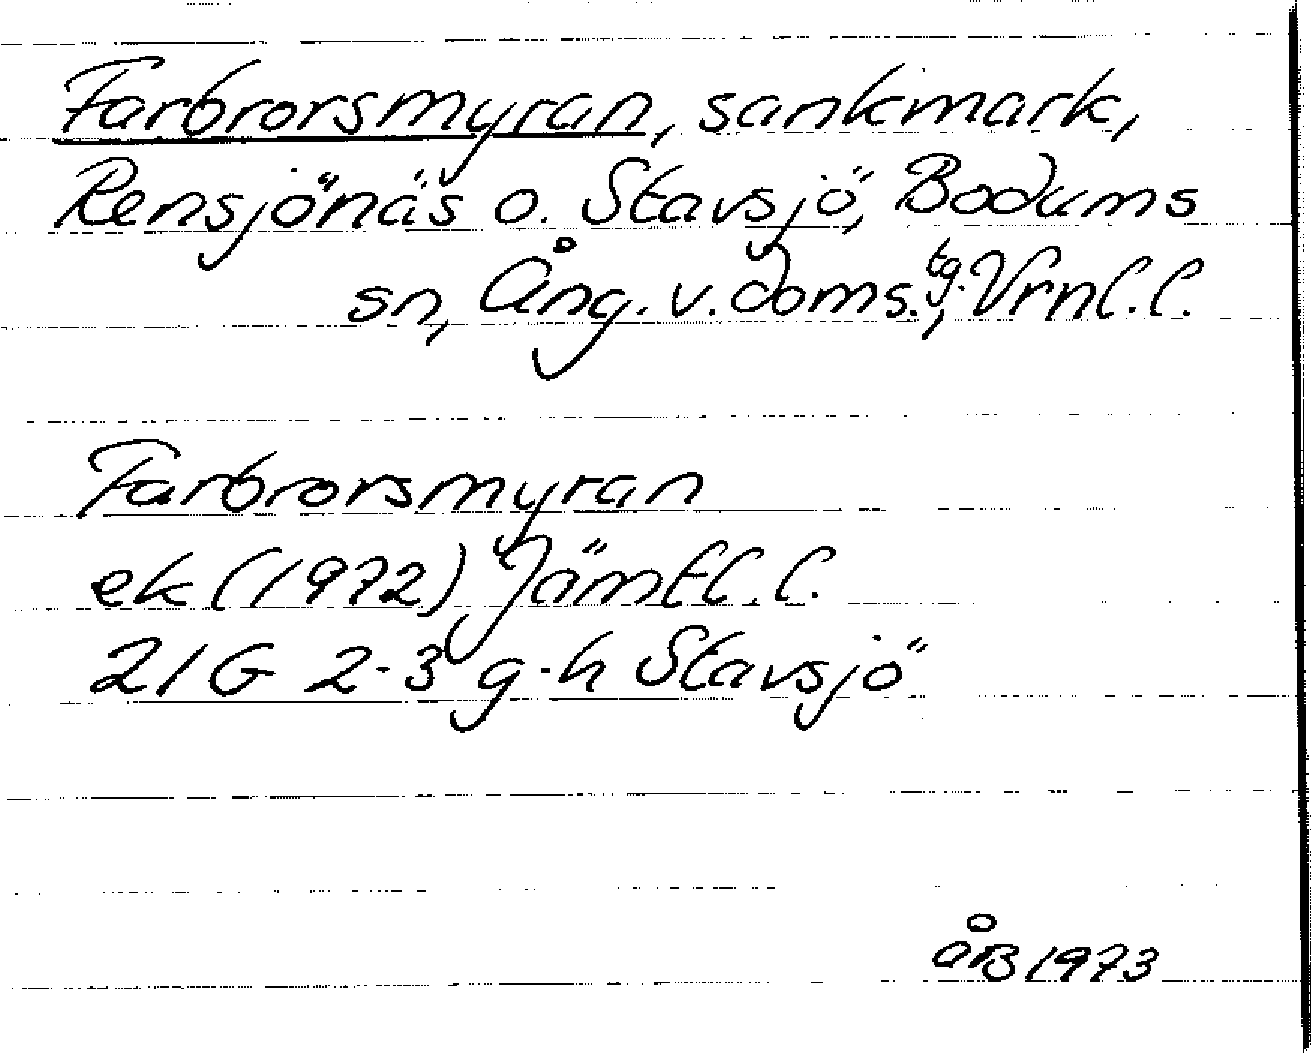 Farbrorsmyran, sankmark,
Rensjönäs o. Stavsjö, Bodums
sn, Ång. v. doms.tg., Vrnl.l.
Farbrorsmyran
ek (1972) Jämtl.l.
21G 2-3 g-h Stavsjö
åB 1973